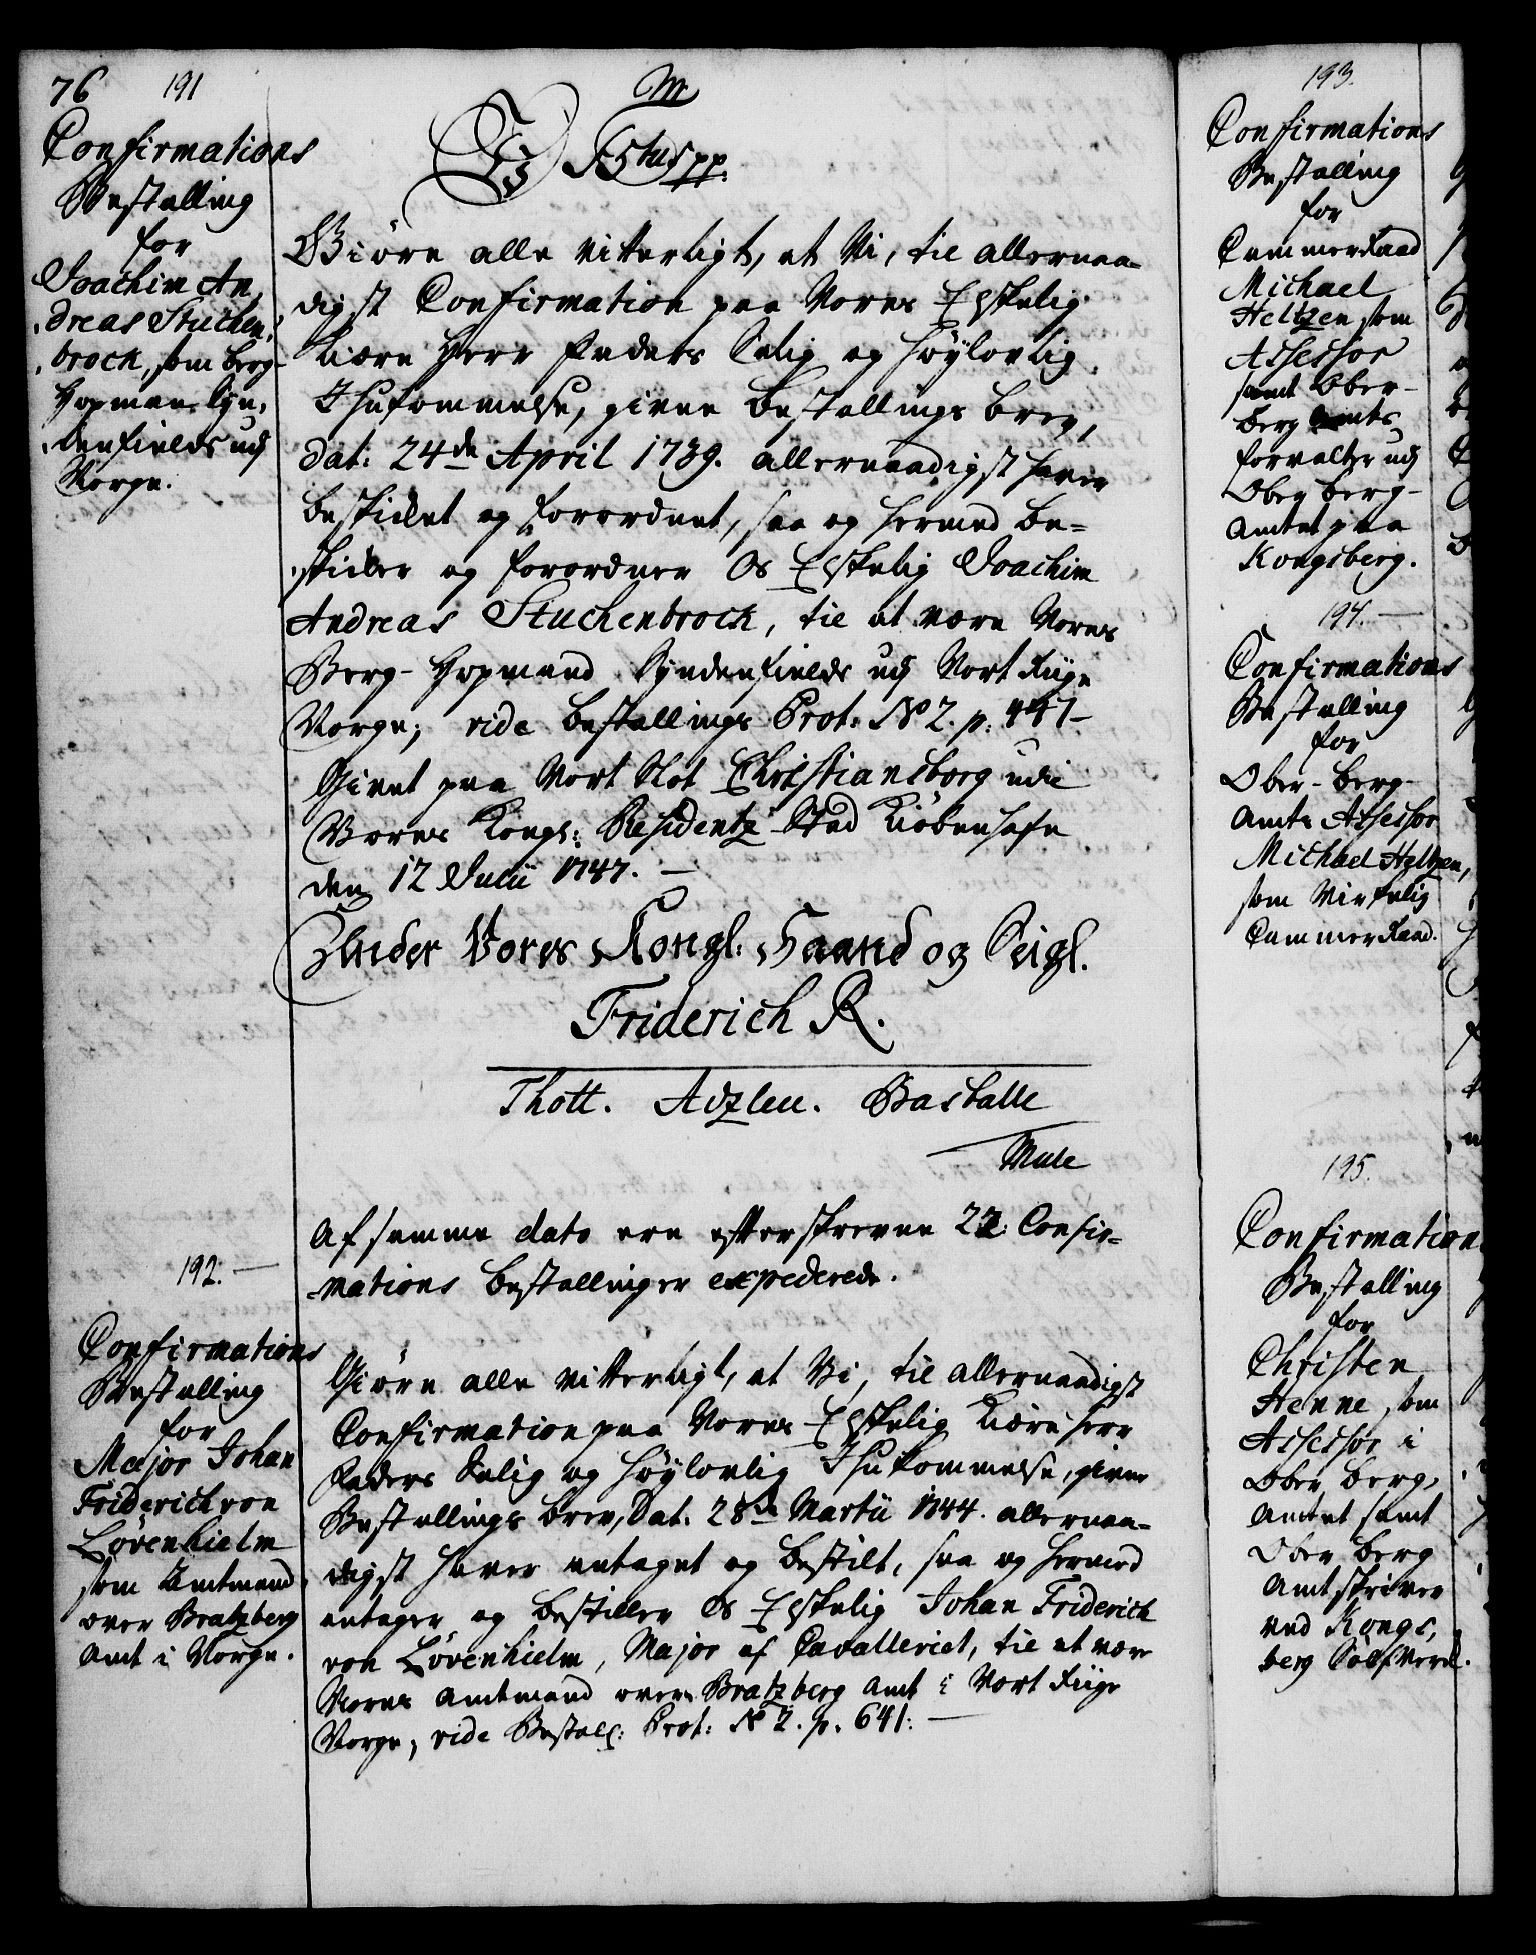 76 191
Confirmations
Bestalling
for
Joachim An
dreas Stuchen,
brock, som Berg-
Hopman Syn,
denfields udj
Norge.
F 5tus pp.
Giöre alle vitterligt, at Vi, til allernaa-
digst Confirmation paa Vores Elskelig
Kiære Herr Faders Salig og Höylovlig
Ihukommelse, givne Bestallings Brev,
dat: 24de April 1739. allernaadigst haver
beskicket og forordnet, saa og hermed be-
skicker og forordner Os Elskelig Joachim
Andreas Stuchenbrock, til at være Vores
Berg-Hopmand Syndenfields udj Vort Riige
Norge; vide Bestallings Prot: No 2. p: 447-
Givet paa Vort Slot Christiansborg udi
Vores Kongl: Residentz Stad Kiöbenhafn
den 12 Junii 1747. —
Under Vores Kongl: Haand og Seigl.
Friderich R.
Thott. Adzleu. Bastalle
Mule
Af samme dato ere efterskrevne 22 Confir-
mations Bestallinger expederede.
192. —
Confirmations
Bestalling
for
Major Johan
Friderich von
Lövenhielm
som Amtmand
over Bratzberg
Amt i Norge.
Giöre alle vitterligt, at Vi, til allernaadigst
Confirmation paa Vores Elskelig Kiære Herr
Faders Salig og Höylovlig Ihukommelse, givne
Bestallings Brev, Dat: 28de Martii 1744. allernaa-
digst haver antaget og bestilt, saa og hermed
antager og bestiller Os Elskelig Johan Friderich
von Lövenhielm, Major af Cavalleriet, til at være
Vores Amtmand over Bratzberg Amt i Vort Riige
Norge, vide Bestall: Prot: No 2. p. 641: —
193.
Confirmations
Bestalling
for
Cammerraad
Michael
Heltzen som
Assessor
samt Ober-
berg Amts
forvalter udj
Ober berg-
Amtet paa
Kongsberg.
194. —
Confirmations
Bestalling
for
Ober-berg-
Amts Assessor
Michael Heltzen,
som Virkelig
Cammer Raad.
195.
Confirmation
Bestalling
for
Christen
Henne, som
Assessor i
Ober Berg,
Amtet samt
Ober berg
Amtskriver
ved Kongs,
berg Sölfverk.